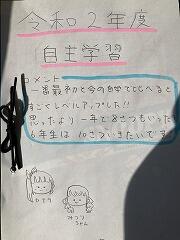 令和2年度
自主学習
コメント
一番最初と今の自学でくらべると
すごくレベルアップした!!
思ったより一年で8さつもいった
6年生は10さついきたいです
みつり
ちゃん